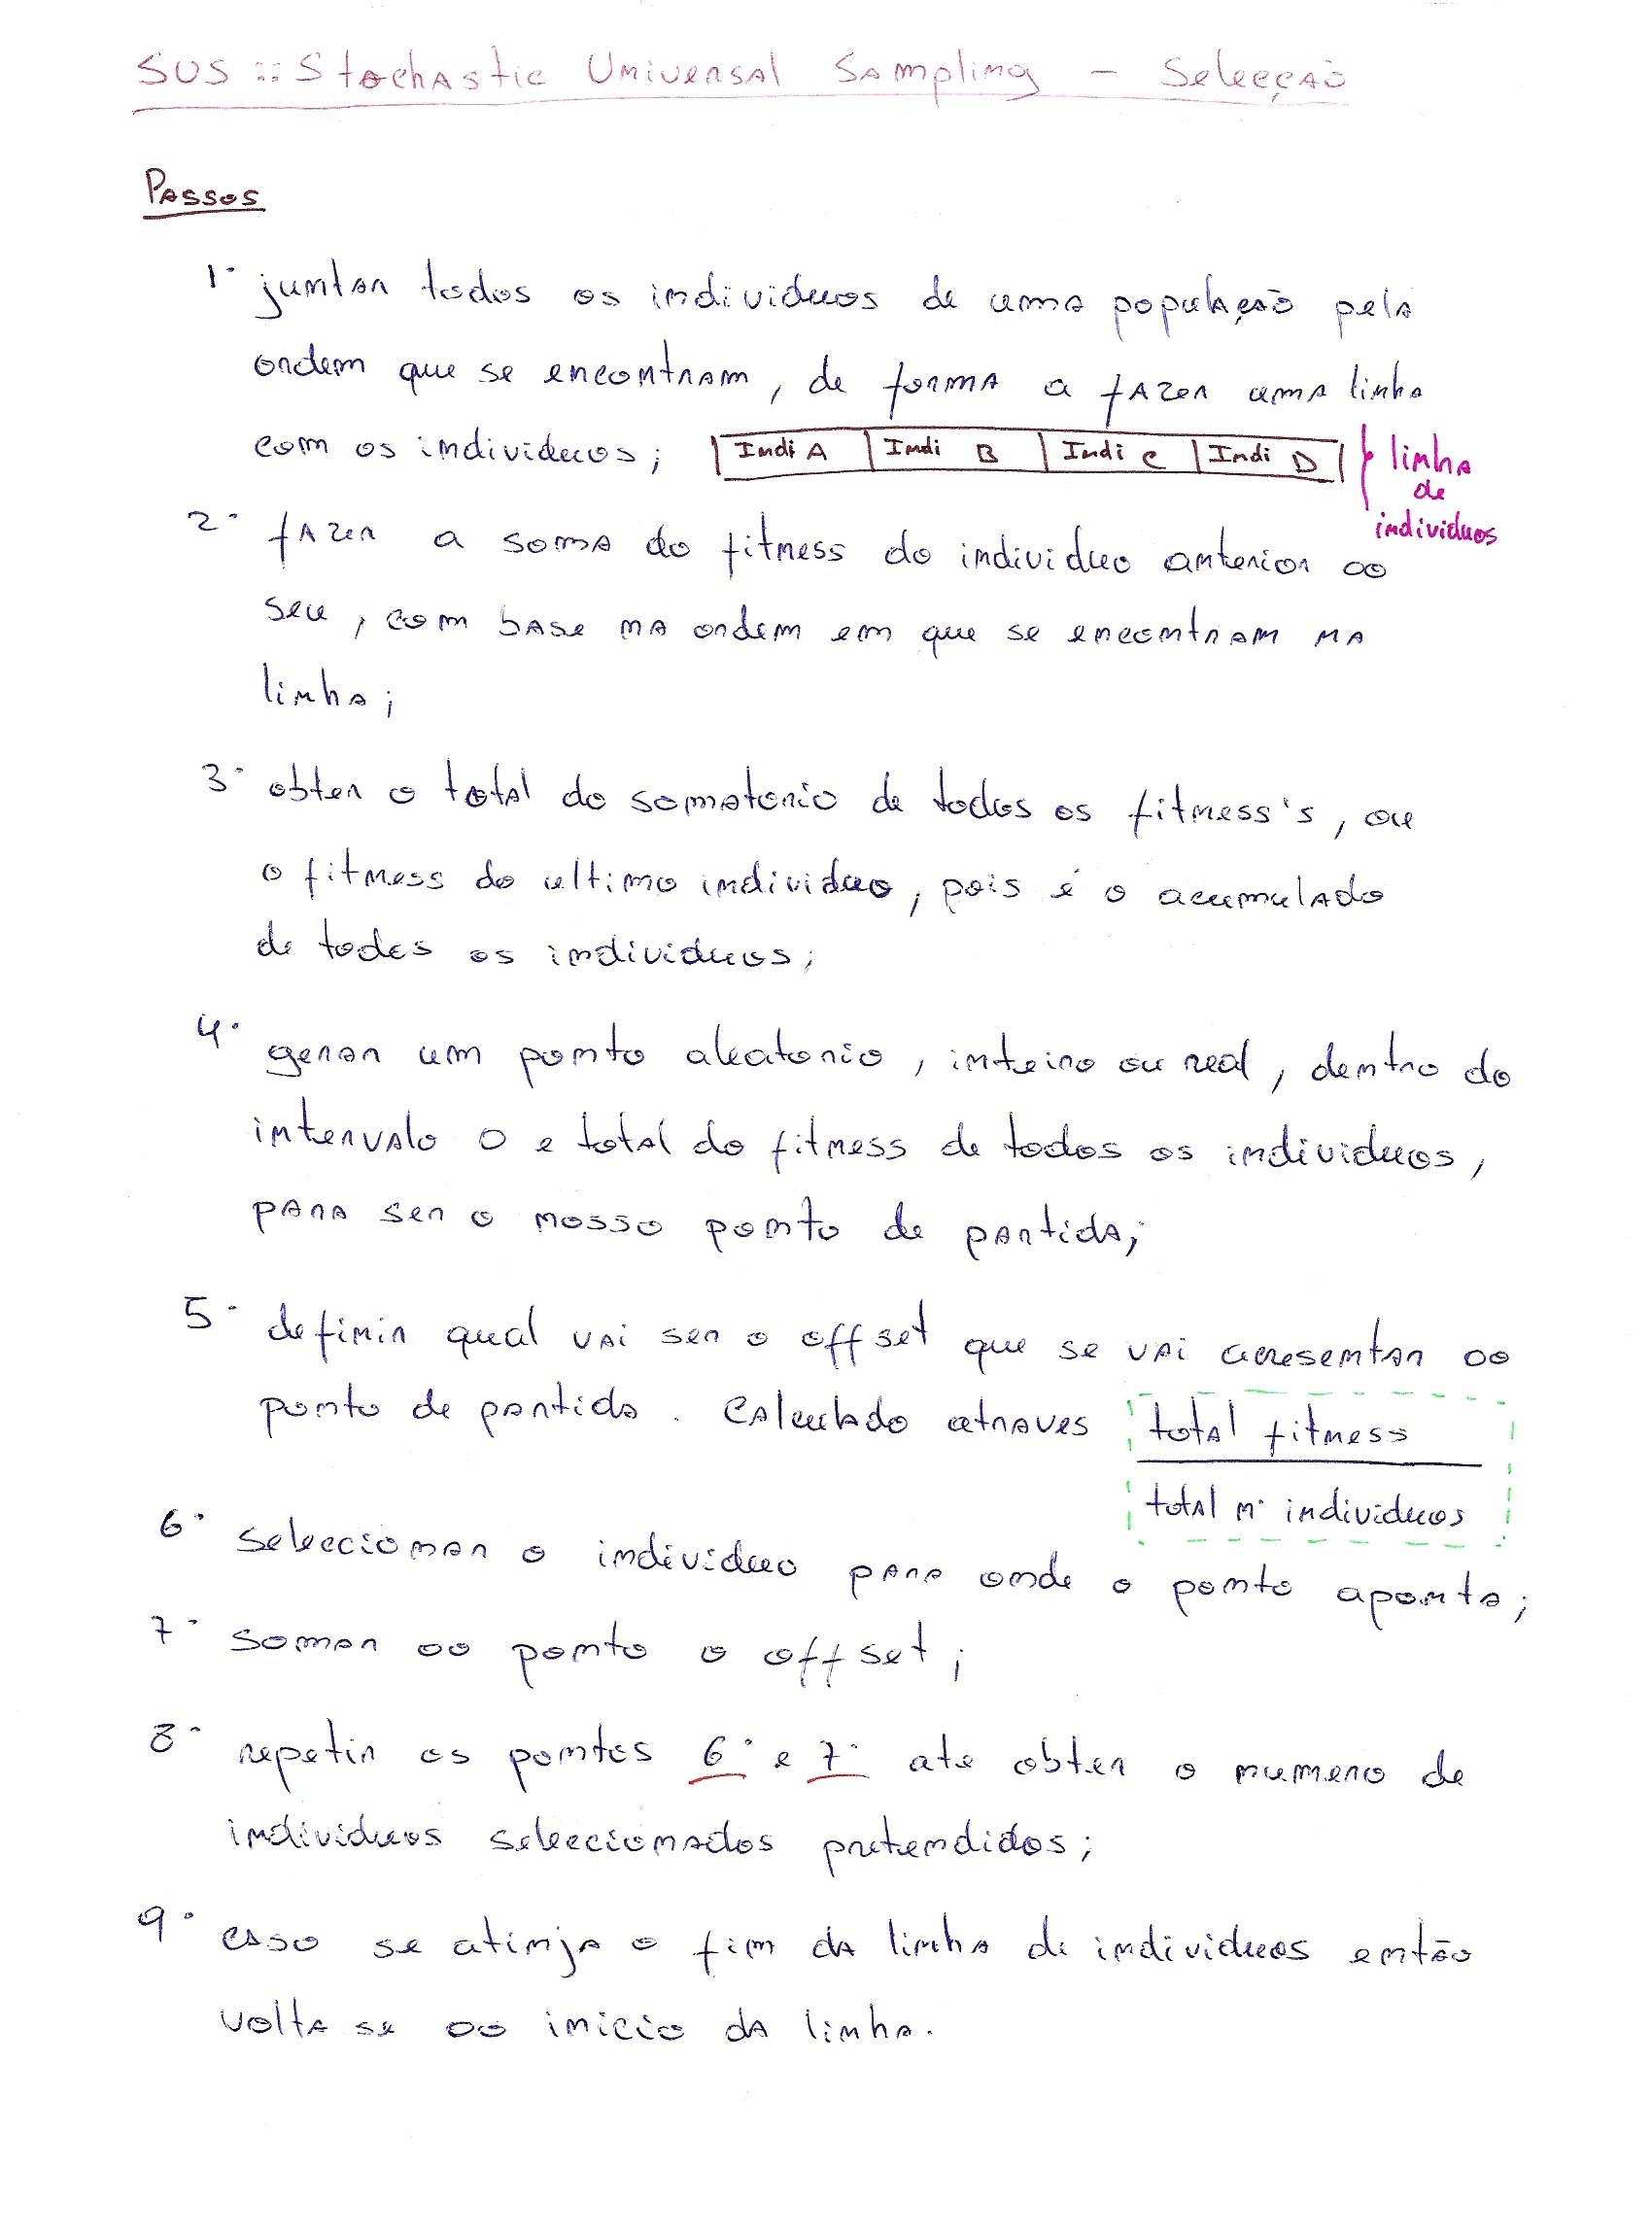 SUS :: Stochastic Universal Sampling - Selecção
Passos
1· juntar todos os individuos de uma população pela
ordem que se encontram, de forma a fazer uma linha
com os individuos;
Indi A | Indi B | Indi C | Indi D
linha
de
individuos
2· fazer a soma do fitness do individuo anterior ao
seu, com base na ordem em que se encontram na
linha;
3· obter o total do somatorio de todos os fitness's, ou
o fitness do ultimo individuo, pois é o acumulado
de todos os individuos;
4· gerar um ponto aleatorio, inteiro ou real, dentro do
intervalo 0 e total do fitness de todos os individuos,
para ser o nosso ponto de partida;
5· definir qual vai ser o offset que se vai acresentar ao
ponto de partida. Calculado atraves
total fitness
total nº individuos
6· seleccionar o individuo para onde o ponto aponta;
7· somar ao ponto o offset;
8· repetir os pontos 6· e 7· ate obter o numero de
individuos seleccionados pretendidos;
9· caso se atinja o fim da linha de individuos então
volta se ao inicio da linha.